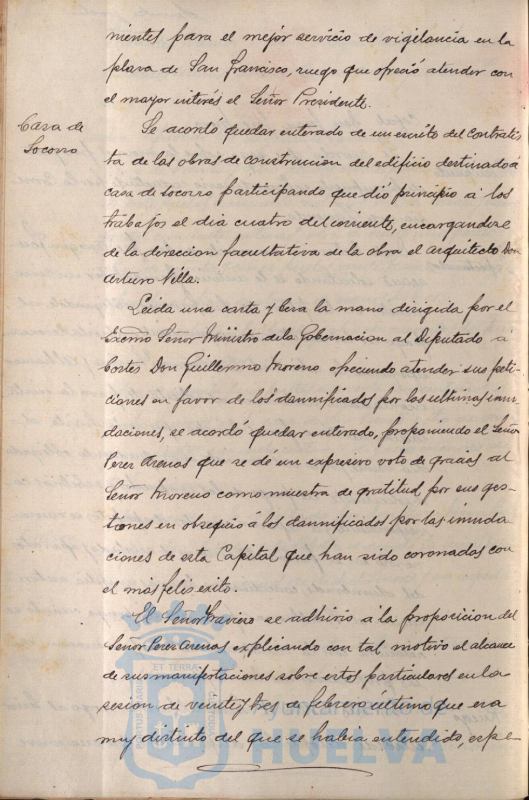 nientes para el mejor servicio de vigilancia en la
plaza de San Francisco, ruego que ofreció atender con
el mayor interés el Señor Presidente.
Casa de
Socorro
Se acordó quedar enterado de un escrito del Contratis
ta de las obras de construccion del edificio destinado á
casa de socorro participando que dió principio á los
trabajos el dia cuatro del corriente, encargandose
de la direccion facultativa de la obra el arquitecto Don
Arturo
Leida una carta y besa la mano dirigida por el
Excmo Señor Ministro de la Gobernacion al Diputado á
Cortes Don Guillermo Moreno ofreciendo atender sus peti-
ciones en favor de los dannificados por las ultimas inun
daciones, se acordó quedar enterado, proponiendo el Señor
Perez Arenas que se dé un expresivo voto de gracias al
Señor Moreno como muestra de gratitud, por sus ges-
tiones en obsequio á los dannificados por las inunda
ciones de esta Capital que han sido coronadas con
el mas felis exito.
El Señor se adhirio á la proposicion del
Señor Perez Arenas explicando con tal motivo el alcance
de sus manifestaciones sobre estos particulares en la
sesion de veinte y tres de febrero último que era
muy distinto del que se habia entendido, espe-
Ayuntamiento de
HUELVA